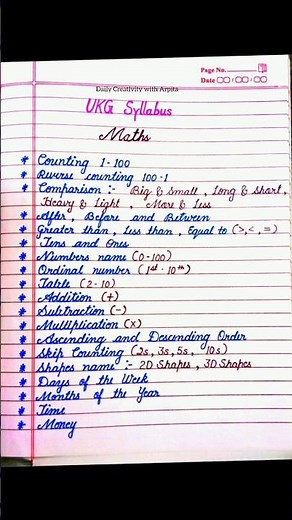 Page No.
Date
Daily Creativity with Arpita
UKG Syllabus
Maths
* Counting 1-100
* Reverse counting 100-1
* Comparison :- Big & Small, Long & Short,
Heavy & Light, More & Less
* After, Before and Between
* Greater than, Less than, Equal to (>,<,=)
* Tens and Ones
* Numbers name (0-100)
* Ordinal number (1st-10th)
* Table (2-10)
* Addition (+)
* Subtraction (-)
* Multiplication (x)
* Ascending and Descending Order
* Skip Counting (2s, 3s, 5s, 10s)
* Shapes name :- 2D Shapes, 3D Shapes
* Days of the Week
* Months of the Year
* Time
* Money